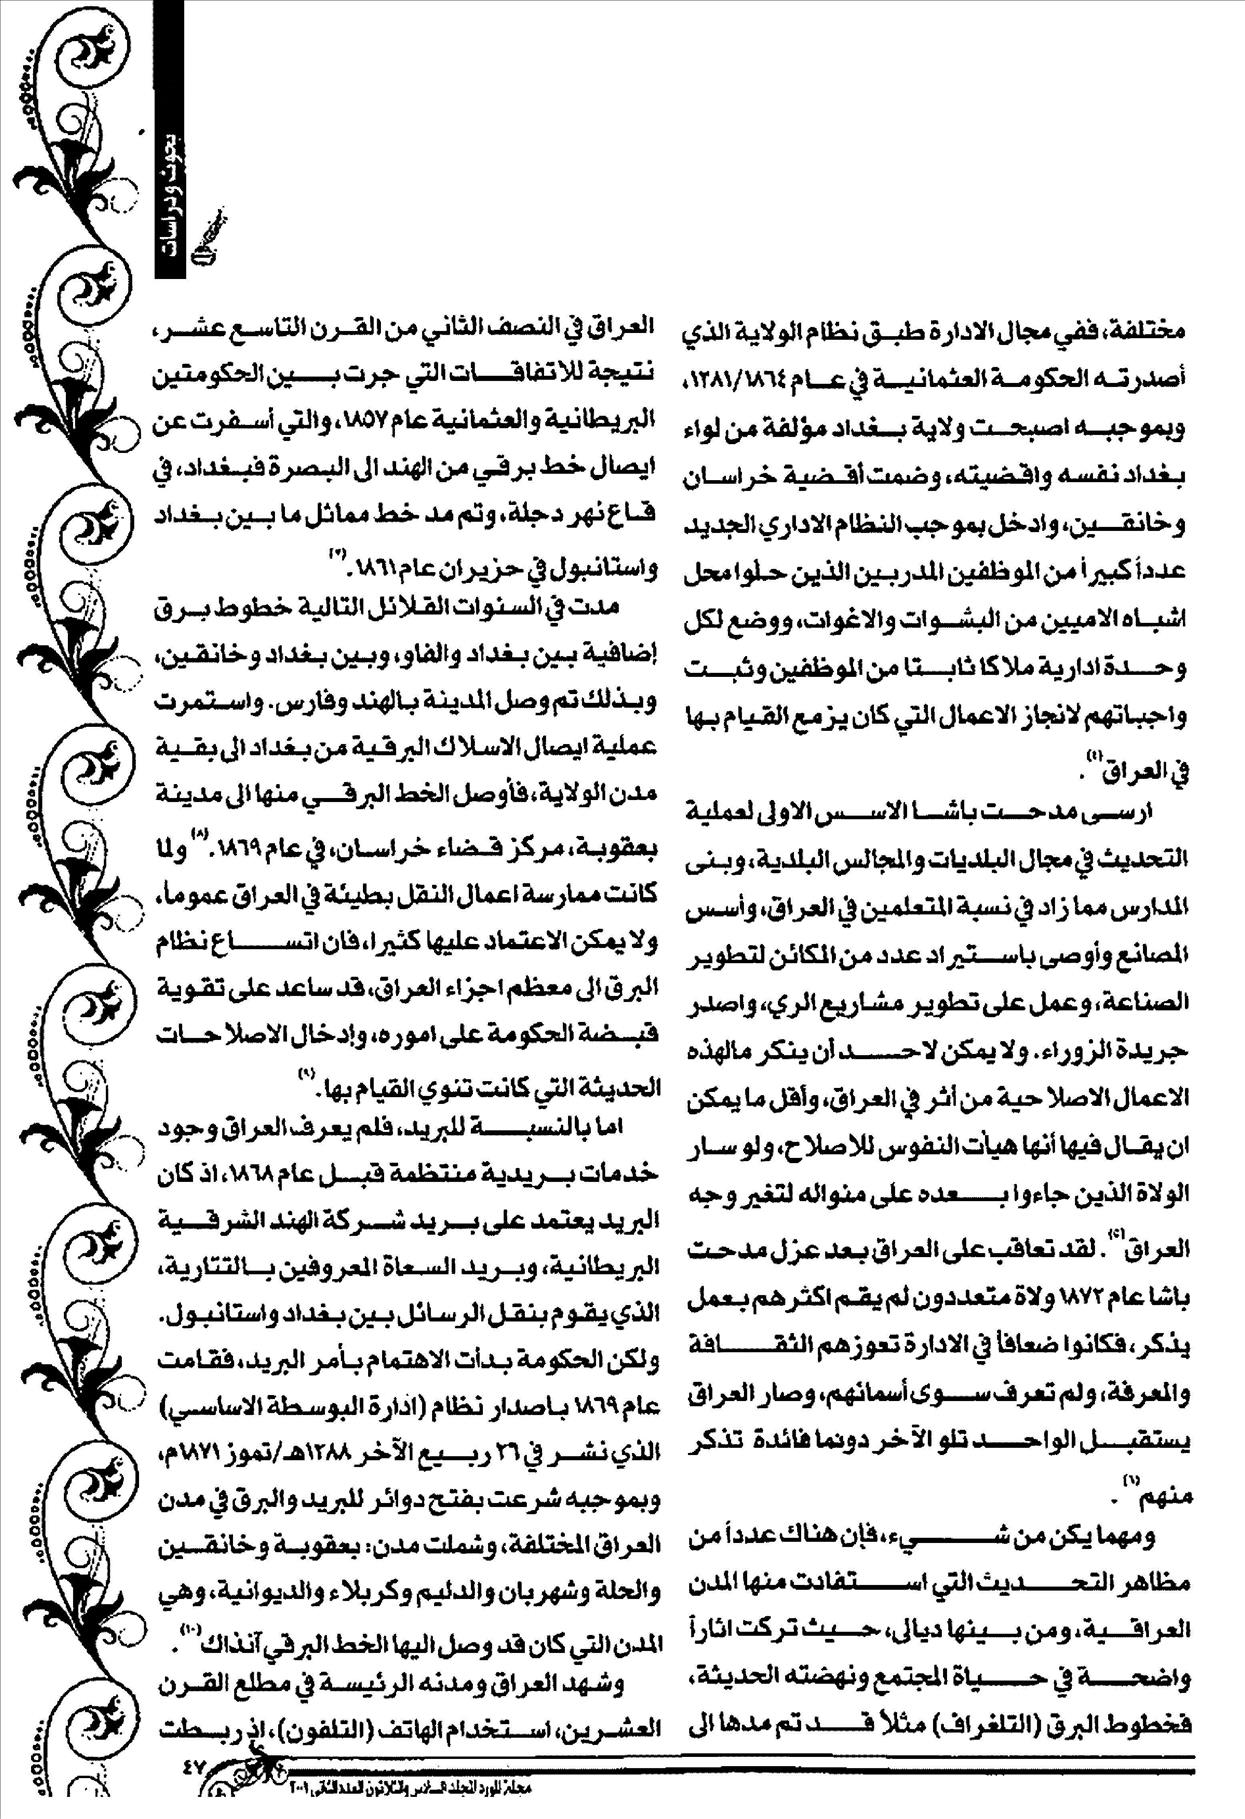 بحوث ودراسات
مختلفة، ففي مجال الادارة طبق نظام الولاية الذي
أصدرته الحكومة العثمانية في عام ١٢٨١/١٨٦٤،
وبموجبه اصبحت ولاية بغداد مؤلفة من لواء
بغداد نفسه واقضيته، وضمت أقضية خراسان
وخانقين، وادخل بموجب النظام الاداري الجديد
عدداً كبيراً من الموظفين المدربين الذين حلوا محل
اشباه الاميين من البشوات والاغوات، ووضع لكل
وحدة ادارية ملاكا ثابتا من الموظفين وثبت
واجباتهم لانجاز الاعمال التي كان يزمع القيام بها
في العراق(٤).
ارسى مدحت باشا الاسس الاولى لعملية
التحديث في مجال البلديات والمجالس البلدية، وبنى
المدارس مما زاد في نسبة المتعلمين في العراق، وأسس
المصانع وأوصى باستيراد عدد من المكائن لتطوير
الصناعة، وعمل على تطوير مشاريع الري، واصدر
جريدة الزوراء. ولا يمكن لاحد أن ينكر مالهذه
الاعمال الاصلاحية من أثر في العراق، وأقل ما يمكن
ان يقال فيها أنها هيأت النفوس للاصلاح، ولو سار
الولاة الذين جاءوا بعده على منواله لتغير وجه
العراق(٥). لقد تعاقب على العراق بعد عزل مدحت
باشا عام ١٨٧٢ ولاة متعددون لم يقم اكثرهم بعمل
يذكر، فكانوا ضعافاً في الادارة تعوزهم الثقافة
والمعرفة، ولم تعرف سوى أسمائهم، وصار العراق
يستقبل الواحد تلو الآخر دونما فائدة تذكر
منهم(٦).
ومهما يكن من شيء، فإن هناك عدداً من
مظاهر التحديث التي استفادت منها المدن
العراقية، ومن بينها ديالى، حيث تركت اثاراً
واضحة في حياة المجتمع ونهضته الحديثة،
فخطوط البرق (التلغراف) مثلاً قد تم مدها الى
العراق في النصف الثاني من القرن التاسع عشر،
نتيجة للاتفاقات التي جرت بين الحكومتين
البريطانية والعثمانية عام ١٨٥٧، والتي أسفرت عن
ايصال خط برقي من الهند الى البصرة فبغداد، في
قاع نهر دجلة، وتم مد خط مماثل ما بين بغداد
واستانبول في حزيران عام ١٨٦١.(٧)
مدت في السنوات القلائل التالية خطوط برق
إضافية بين بغداد والفاو، وبين بغداد وخانقين،
وبذلك تم وصل المدينة بالهند وفارس. واستمرت
عملية ايصال الاسلاك البرقية من بغداد الى بقية
مدن الولاية، فأوصل الخط البرقي منها الى مدينة
بعقوبة، مركز قضاء خراسان، في عام ١٨٦٩.(٨) ولما
كانت ممارسة اعمال النقل بطيئة في العراق عموماً،
ولا يمكن الاعتماد عليها كثيرا، فان اتساع نظام
البرق الى معظم اجزاء العراق، قد ساعد على تقوية
قبضة الحكومة على اموره، وإدخال الاصلاحات
الحديثة التي كانت تنوي القيام بها.(٩)
اما بالنسبة للبريد، فلم يعرف العراق وجود
خدمات بريدية منتظمة قبل عام ١٨٦٨، اذ كان
البريد يعتمد على بريد شركة الهند الشرقية
البريطانية، وبريد السعاة المعروفين بالتتارية،
الذي يقوم بنقل الرسائل بين بغداد واستانبول.
ولكن الحكومة بدأت الاهتمام بأمر البريد، فقامت
عام ١٨٦٩ باصدار نظام (ادارة البوسطة الاساسي)
الذي نشر في ٢٦ ربيع الآخر ١٢٨٨هـ/تموز ١٨٧١م،
وبموجبه شرعت بفتح دوائر للبريد والبرق في مدن
العراق المختلفة، وشملت مدن: بعقوبة وخانقين
والحلة وشهربان والدليم وكربلاء والديوانية، وهي
المدن التي كان قد وصل اليها الخط البرقي آنذاك(١٠).
وشهد العراق ومدنه الرئيسة في مطلع القرن
العشرين، استخدام الهاتف (التلفون)، اذ ربطت
٤٧
مجلة المورد المجلد السادس والثلاثون العدد الثاني ٢٠٠٩